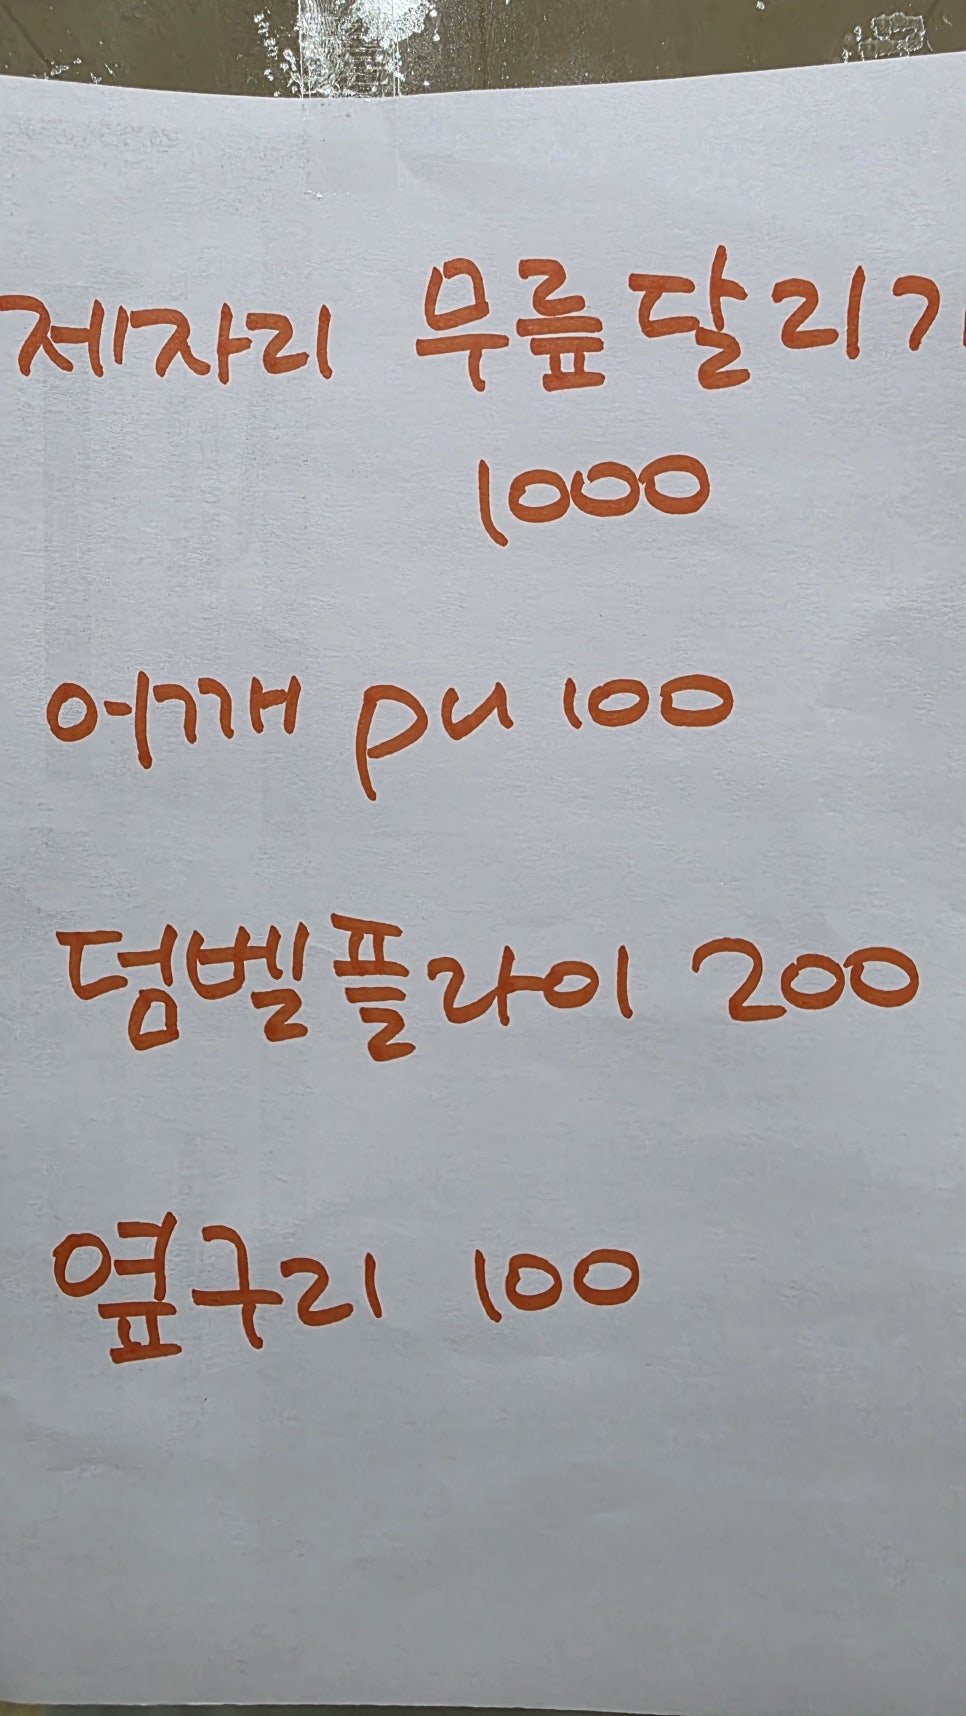 제자리 무릎달리기
1000
어깨 pu 100
덤벨플라이 200
옆구리 100